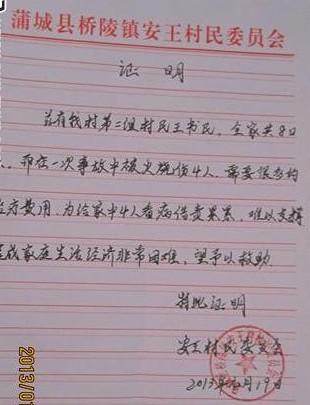 蒲城县桥陵镇安王村民委员会
证 明
兹有我村第二组村民王书民，全家共8口
人，但在一次事故中被火烧伤4人，需要很多的
治疗费用，为给家中4人看病借责累累，难以支撑
造成家庭生活经济非常困难，望予以救助
特此证明
安王村民委员会
2013年元月19日
2013/0